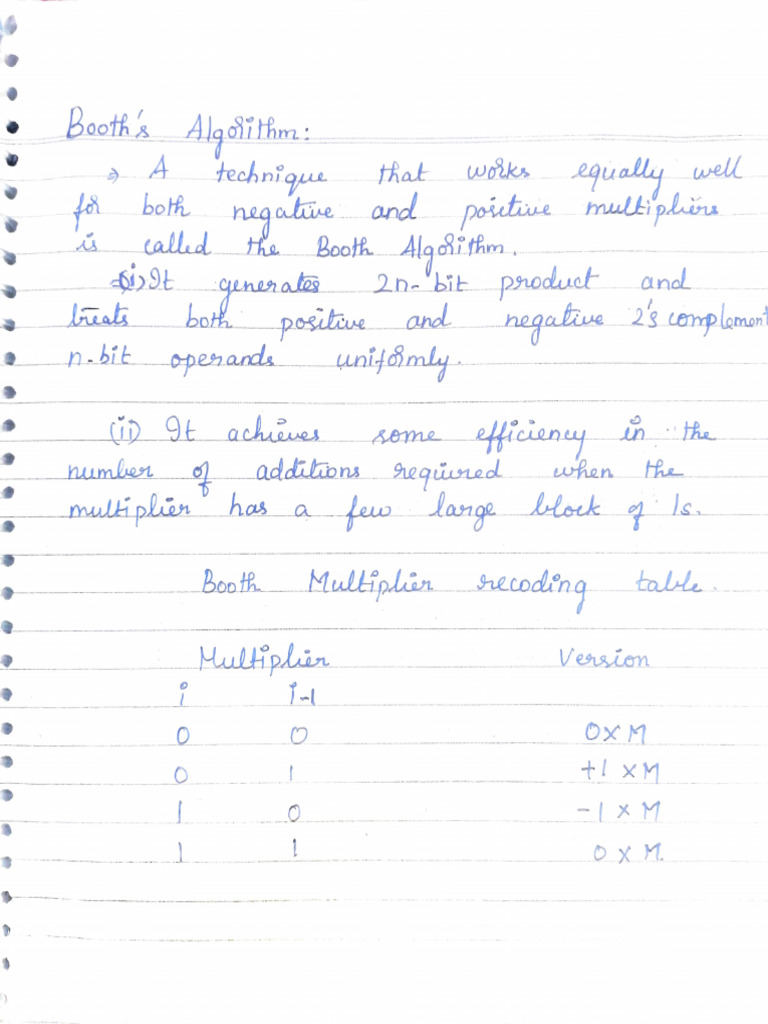 Booth's Algorithm:
→ A technique that works equally well
for both negative and positive multipliers
is called the Booth Algorithm.
(i) It generates 2n-bit product and
treats both positive and negative 2's complement
n-bit operands uniformly.
(ii) It achieves some efficiency in the
number of additions required when the
multiplier has a few large block of 1s.
Booth Multiplier recoding table.
Multiplier Version
i i-1
0 0 0 x M
0 1 +1 x M
1 0 -1 x M
1 1 0 x M.